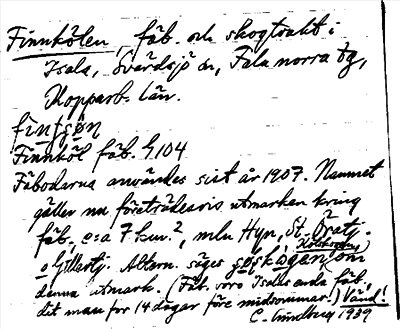 Finnkölen, fäb. och skogtrakt i
Isala, Svärdsjö sn, Falu norra tg,
Kopparb. län.
Finnköl fäb. G 104
Fäbodarna användes sist år 1907. Namnet
gäller nu företrädesvis utmarken kring
fäb. c:a 7 km², mln Hyn, St. Öratj.
o Gillertj. Altern. säges om
denna utmark. (Fäb. voro Isalas enda fäb.
dit man for 14 dagar före midsommar.) Vänd!
C. Grundberg 1939